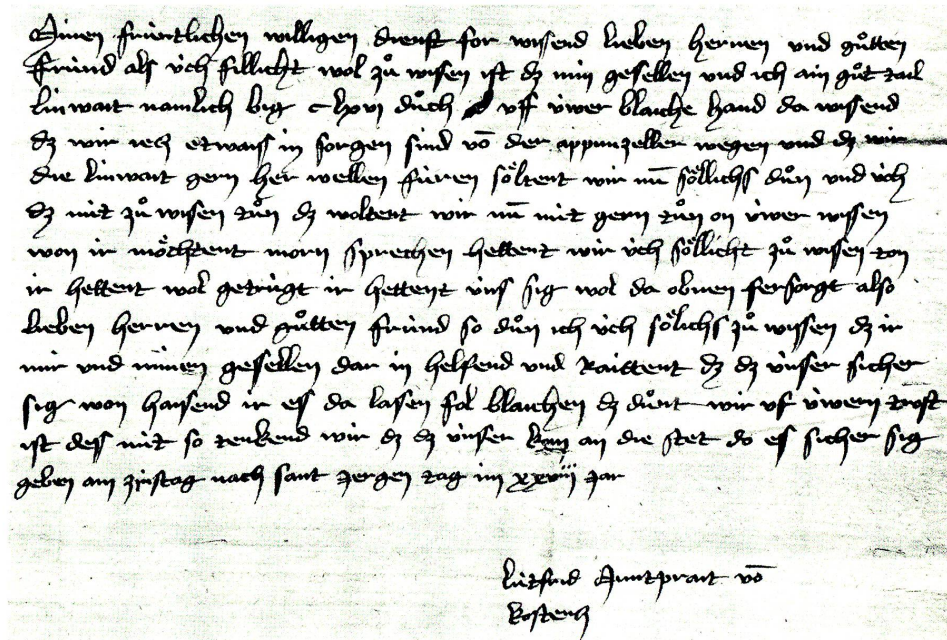 Minen früntlichen willigen dienst for wisend lieben herren und gůtten
fründ als üch fillicht wol zů wisen ist dz min gesellen und ich ain gůt tail
linwat namlich big c lxvi důch uff üwer blaiche hand da wisend
dz wir ietz etwass in sorgen sind vō der appunzeller wegen und dz wir
die linwat gern her wellen füren söltent wir nū söllichs důn und üch
dz nüt zů wisen tůn dz woltent wir nū nüt gern tůn on üwer wissen
won ir möchtent morn sprechen hettent wir üch söllicht zů wisen ton
ir hettent wol getrügt ir hettent üns sig wol da obnen fersorgt also
lieben herren und gůtten fründ so důn ich üch sölichs zů wissen dz ir
mir und minen gesellen dar in helfend und Raittent dz dz ünser sicher
sig won haisend ir es da lasen fol blaichen dz důnt wir uf üwern trost
ist dess nüt so tenkend wir dz dz ünser kum an die stet do es sicher sig
geben am zinstag nach sant Jergen tag im xxviii Jar
Lütfrid Muntprat vō
Kostentz